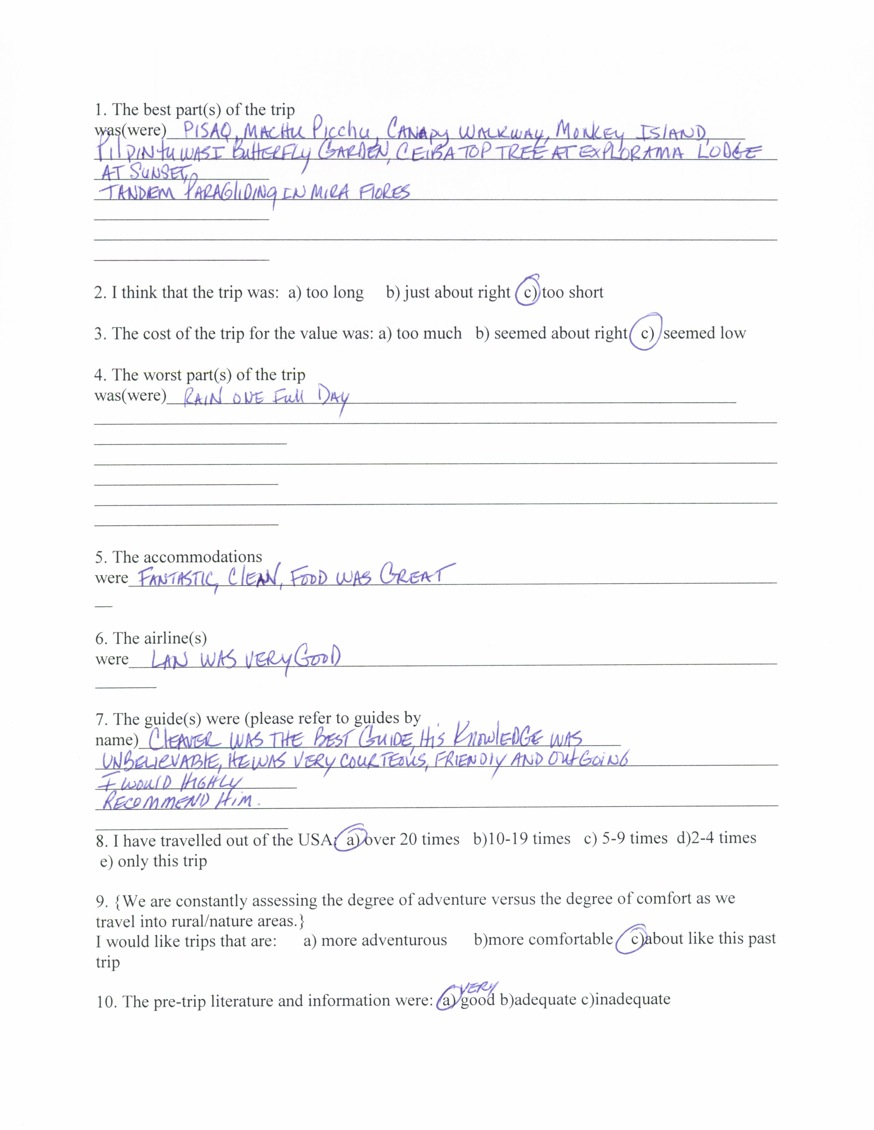 1. The best part(s) of the trip
was(were) PISAQ, MACHU Picchu, CANAPY WALKWAY, MONKEY ISLAND
PILPINTUWASI BUTTERFLY GARDEN, CEIBA TOP TREE AT EXPLORAMA LODGE
AT SUNSET,
TANDEM PARAGLIDING IN MIRA FLORES
2. I think that the trip was: a) too long b) just about right c) too short
3. The cost of the trip for the value was: a) too much b) seemed about right c) seemed low
4. The worst part(s) of the trip
was(were) RAIN ONE Full DAY
5. The accommodations
were FANTASTIC, CLEAN, FOOD WAS GREAT
6. The airline(s)
were LAN WAS VERY GOOD
7. The guide(s) were (please refer to guides by
name) CLEAVER WAS THE BEST GUIDE, His KNOWLEDGE WAS
UNBELIEVABLE, HE WAS VERY COURTEOUS, FRIENDLY AND OUTGOING
I WOULD HIGHLY
RECOMMEND HIM.
8. I have travelled out of the USA: a) over 20 times b)10-19 times c) 5-9 times d)2-4 times
e) only this trip
9. {We are constantly assessing the degree of adventure versus the degree of comfort as we
travel into rural/nature areas.}
I would like trips that are: a) more adventurous b)more comfortable c)about like this past
trip
VERY
10. The pre-trip literature and information were: a) good b)adequate c)inadequate